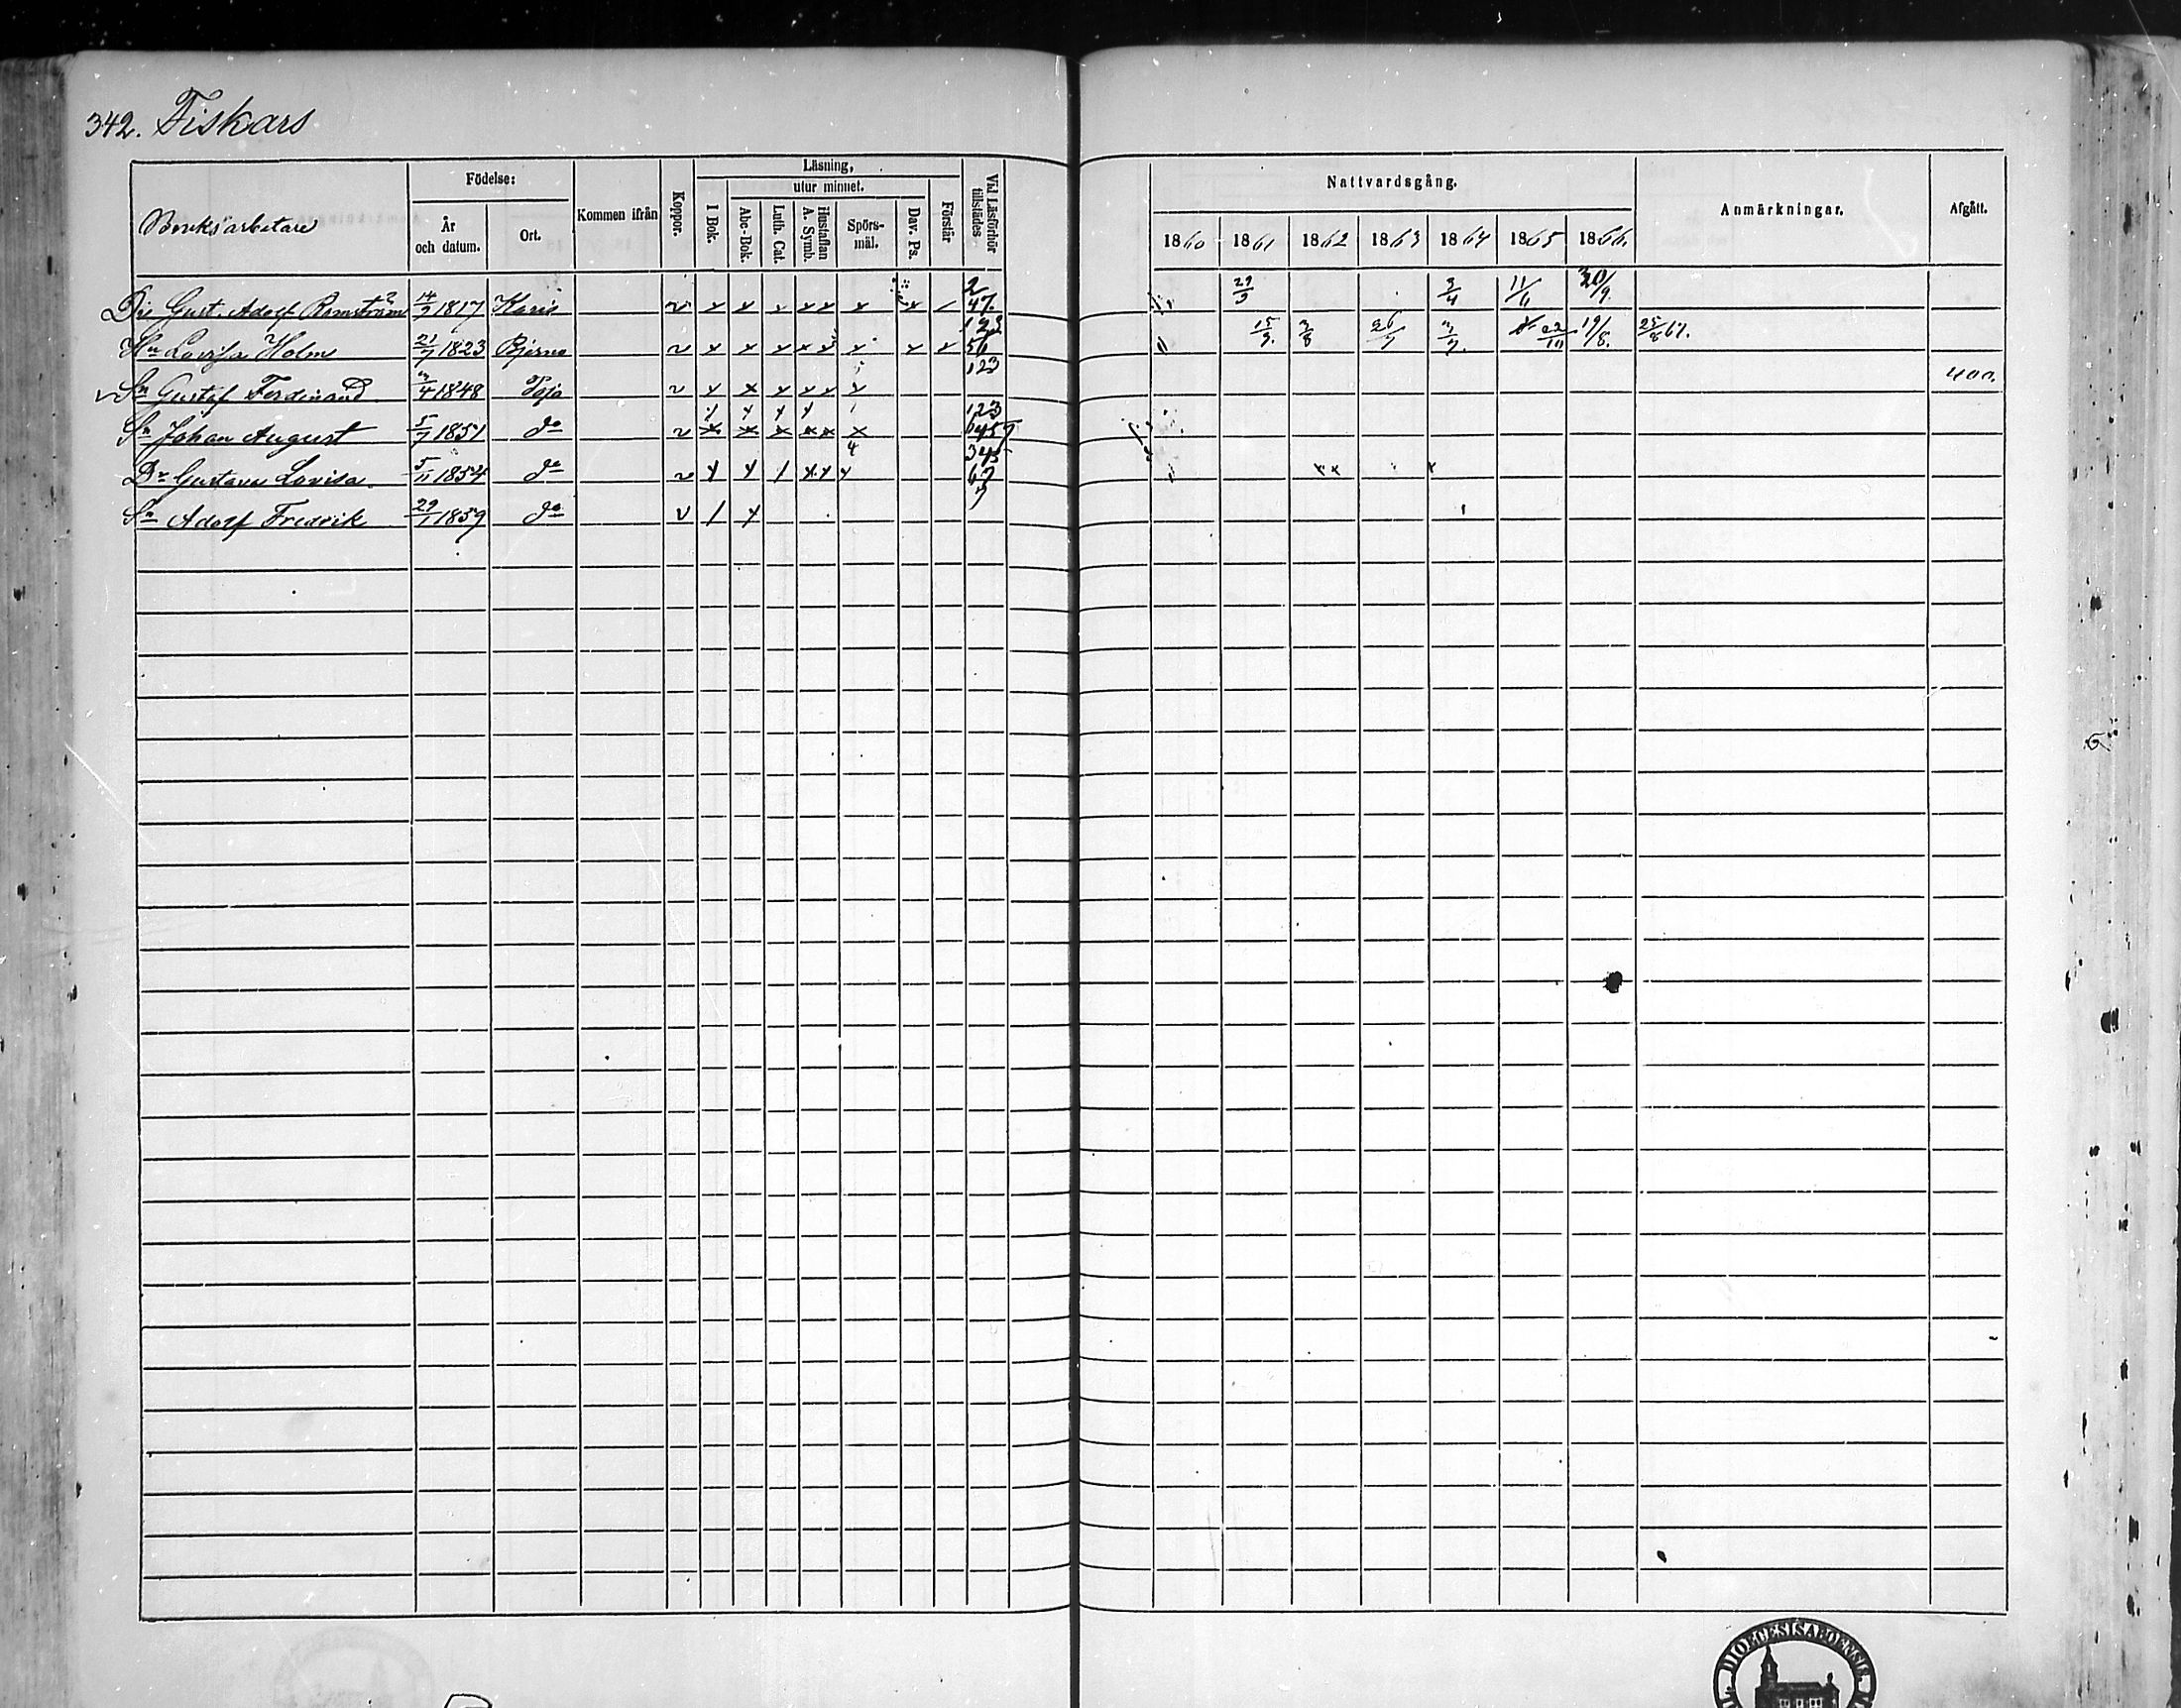 342. Fiskars
Bruksarbetare
Födelse:
År och datum.
Ort.
Kommen ifrån
Koppor.
Läsning,
utur minnet.
I Bok.
Abc-Bok.
Luth. Cat.
Hustaflan A. Symb.
Spörs-mål.
Dav. Ps.
Förstår
Vid Läsförhör tillstädes
Nattvardsgång.
1860 1861 1862 1863 1864 1865 1866.
Anmärkningar.
Afgått.
Gust. Adolf Ramström 14/9 1817 Karis v x x x x x x x / 2 47. 29/9 3/4 11/6 30/9.
Hu Lovisa Holm 21/7 1823 Bjerno v x x x x x x x x 123 56 15/9. 3/8 26/7 3/7. 22/10 19/8. 25/8 67.
Sn Gustaf Ferdinand 3/4 1848 Pojo v x x x x x x 123 400.
Sn Johan August 5/7 1851 do v x x x x x x 123 1457
Dr Gustava Lovisa. 5/11 1854 do v x x / x x x 345 67
Sn Adolf Fredrik 29/1 1859 do v / x 7
DIOECESIS ABOENSIS